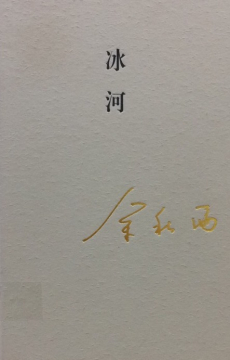 冰河
余秋雨